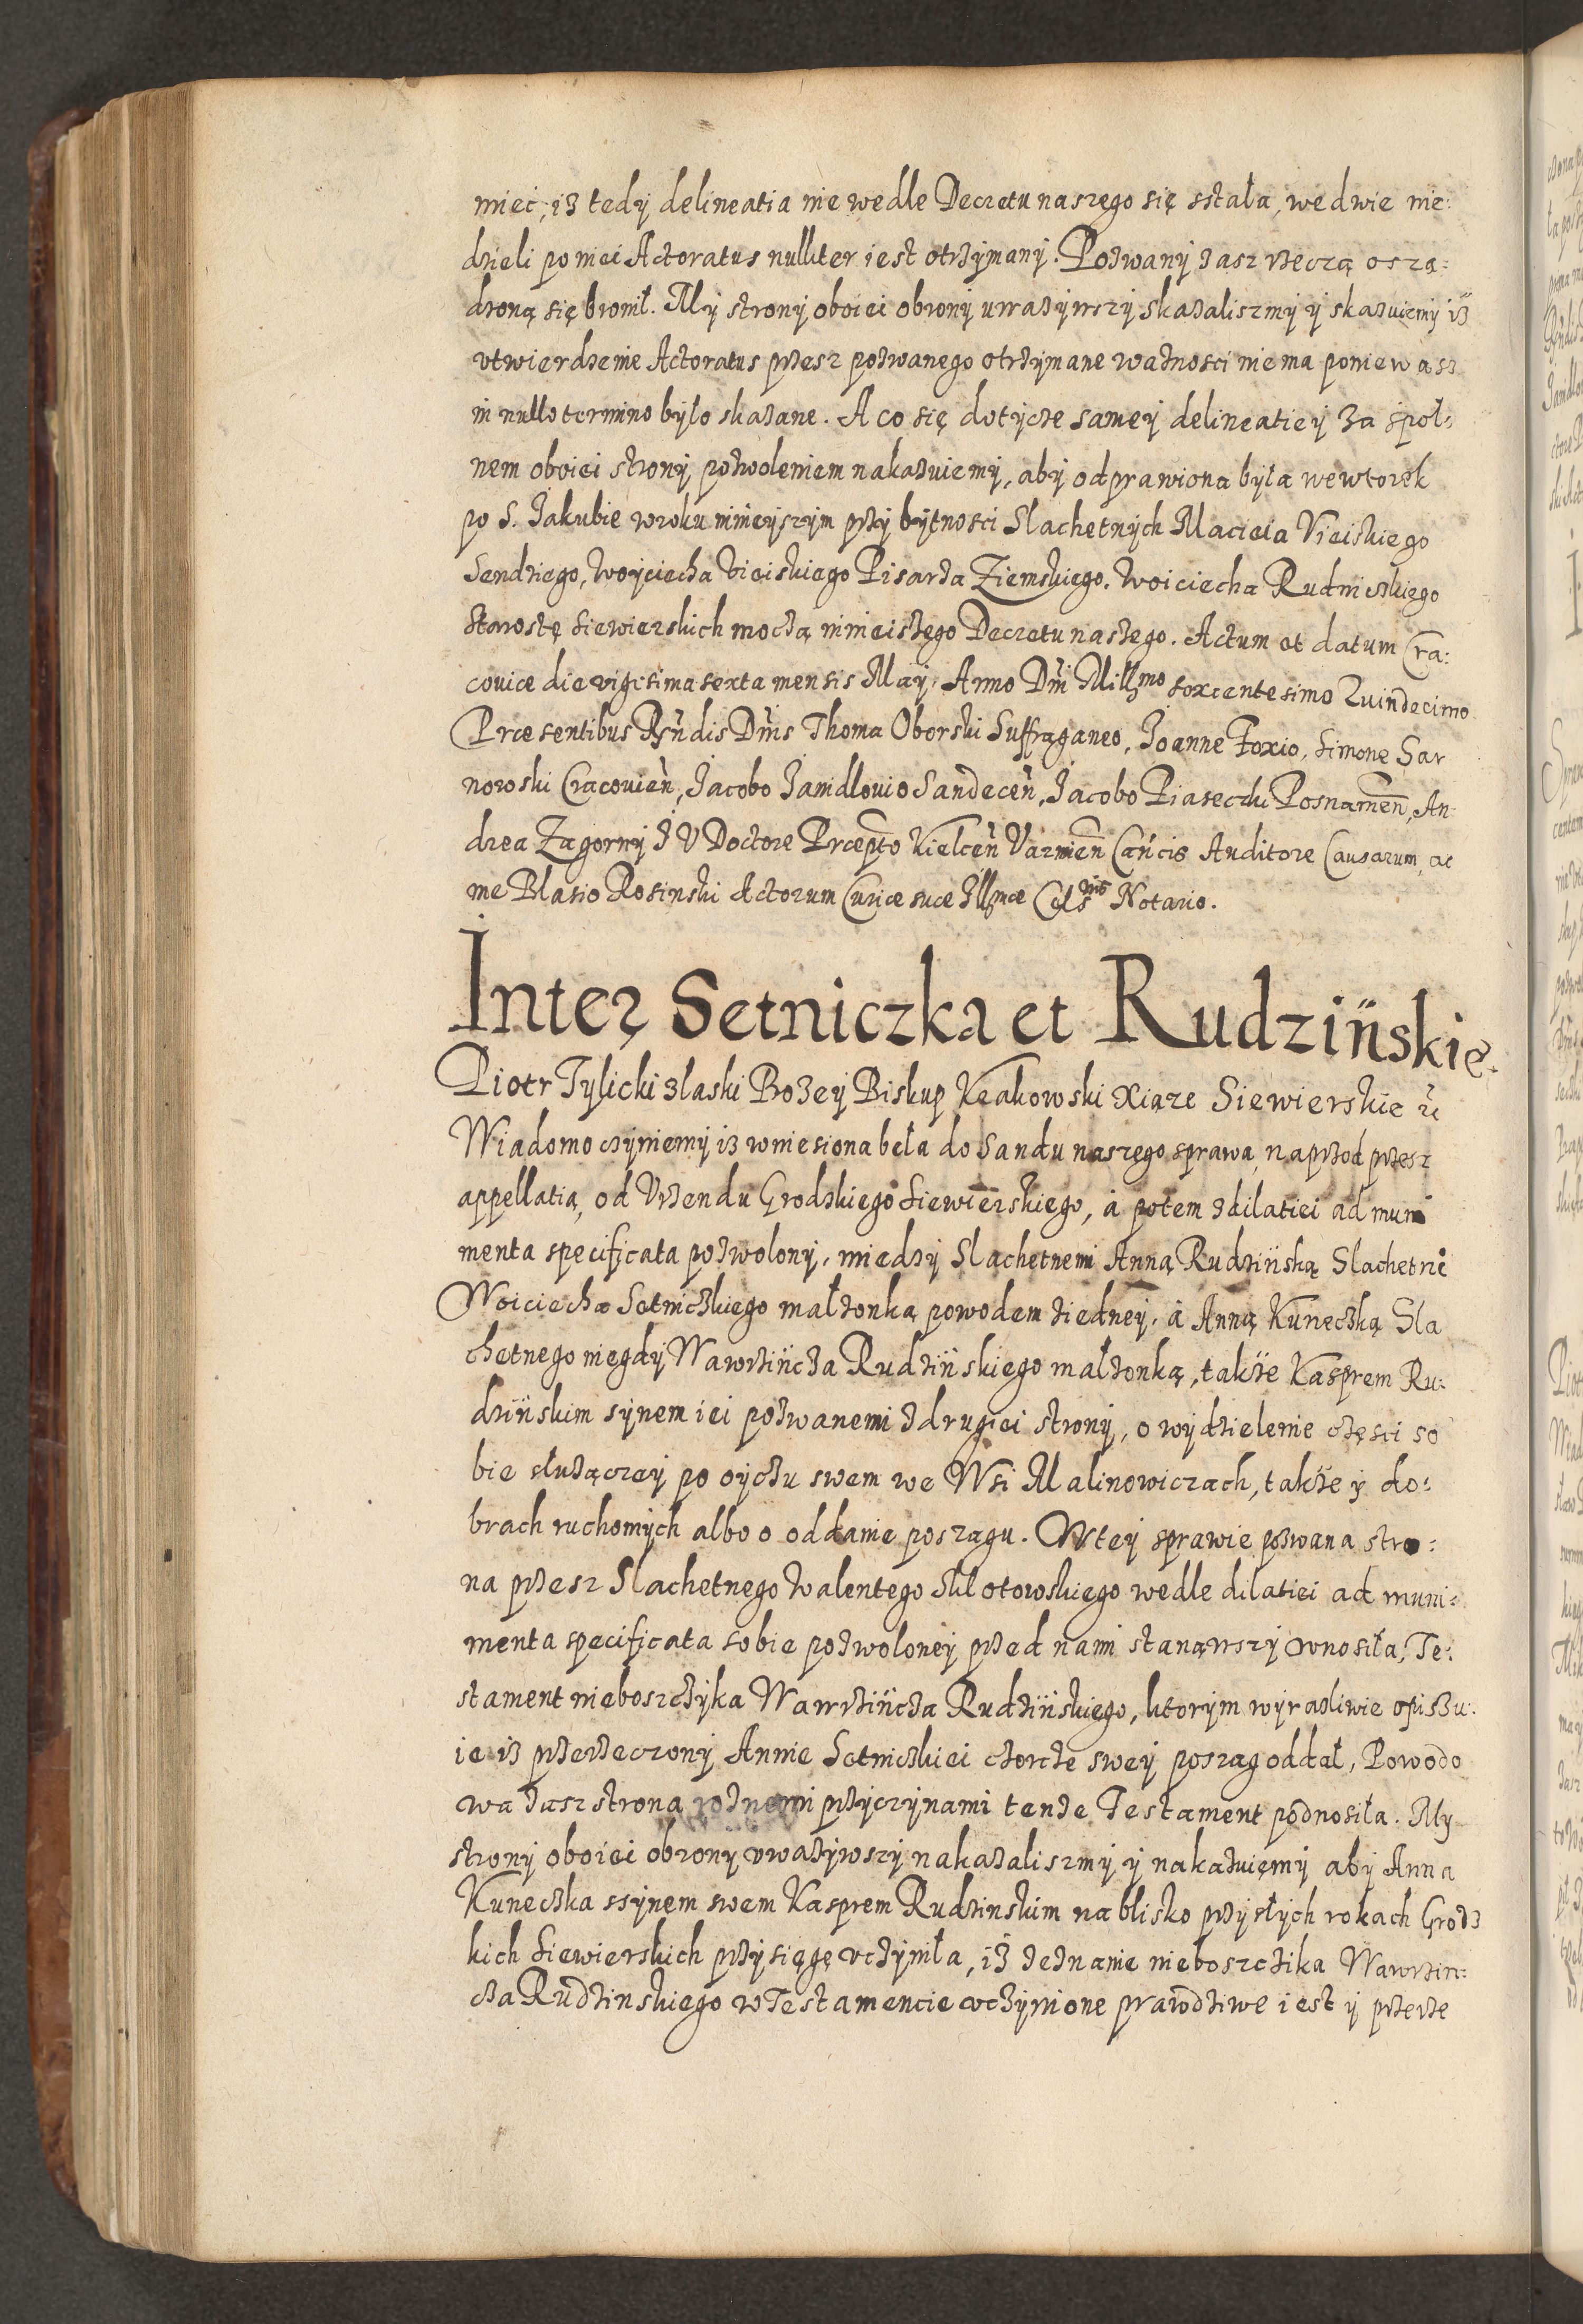 miec, iz tedy delineatia nie wedle Decretu naszego się sstała, we dwie nie:
dzieli po niei Actoratus nulliter iest otrzymany. Pozwany zasz rzeczą oszą:
dzoną się bronił. My strony oboiei obrony uwazywszy skazaliszmy y skazuiemy iz
utwierdzenie Actoratus przesz pozwanego otrzymane waznosci nie ma poniewasz
in nullo termino było skazane. A co się dotycze samey delineatiey za społ:
nem oboiei strony pozwoleniem nakazuiemy, aby odprawiona była we wtorek
po S. Jakubie w roku ninieyszym przy bytnosci Slachetnych Macieia Uieiskiego
Sendziego, Woyciecha Uieiskiego Pisarza Ziemskiego. Woiciecha Rudniczkiego
Starostę Siewierskich moczą ninieiszego Decretu naszego. Actum et datum Cra:
coviæ die vigesima sexta mensis Maÿ, Anno Dni Millmo sexcentesimo Quindecimo
Præsentibus Rndis Dnis Thoma Oborski Suffraganeo, Joanne Foxio, Simone Sar
nowski Cracovien, Jacobo Janidlovio Sandecen, Jacobo Piaseczki Posnanien, An
drea Zagorny J V Doctore Præpto Kielcen Varmien Cancis Auditore Causarum, ac
me Blasio Rosinski Actorum Curiæ suæ Illmæ Celsnis Notario.
Inter Setniczka et Rudzińskie.
Piotr Tylicki z laski Bozey Biskup Krakowski Xiąze Siewierskie &c
Wiadomo czyniemy iz wniesiona beła do Sandu naszego sprawa, naprzod przesz
appellatią, od Urzendu Grodzkiego Siewierskiego, a potem z dilatiei ad muni
menta specificata pozwolony, miedzy Slachetnemi Anną Rudzińską Slachetne
Woiciecha Setniczkiego małzonką powodem z iedney, a Anną Kuneczką Sla
chetnego niegdy Wawrzińcza Rudzińskiego małzonką, takze Kasprem Ru:
dzińskim synem iei pozwanemi z drugiei strony, o wydzielenie częsci so
bie słuzączey po oyczu swem we Wsi Malinowiczach, takze y do:
brach ruchomych albo o oddanie poszagu. W tey sprawie pozwana stro:
na przesz Slachetnego Walentego Skłotowskiego wedle dilatiei ad muni:
menta specificata sobie pozwoloney przed nami stanąwszy wnosiła, Te:
stament nieboszczyka Wawrzińcza Rudzińskiego, ktorym wyrazliwie opiszu:
ie iz przerzeczony Annie Setniczkiei czorcze swey poszag oddał, Powodo
wa zasz strona roznemi przyczynami tenze Testament podnosiła. My
strony oboiei obrony uwazywszy nakazaliszmy y nakazuięmy aby Anna
Kuneczka ssynem swem Kasprem Rudzinskim na blisko przyszłych rokach Grodz
kich Siewierskich przysięgę uczyniła, iz zeznanie nieboszczika Wawrzin:
cza Rudzinskiego w Testamencie uczynione prawdziwe iest y przerze